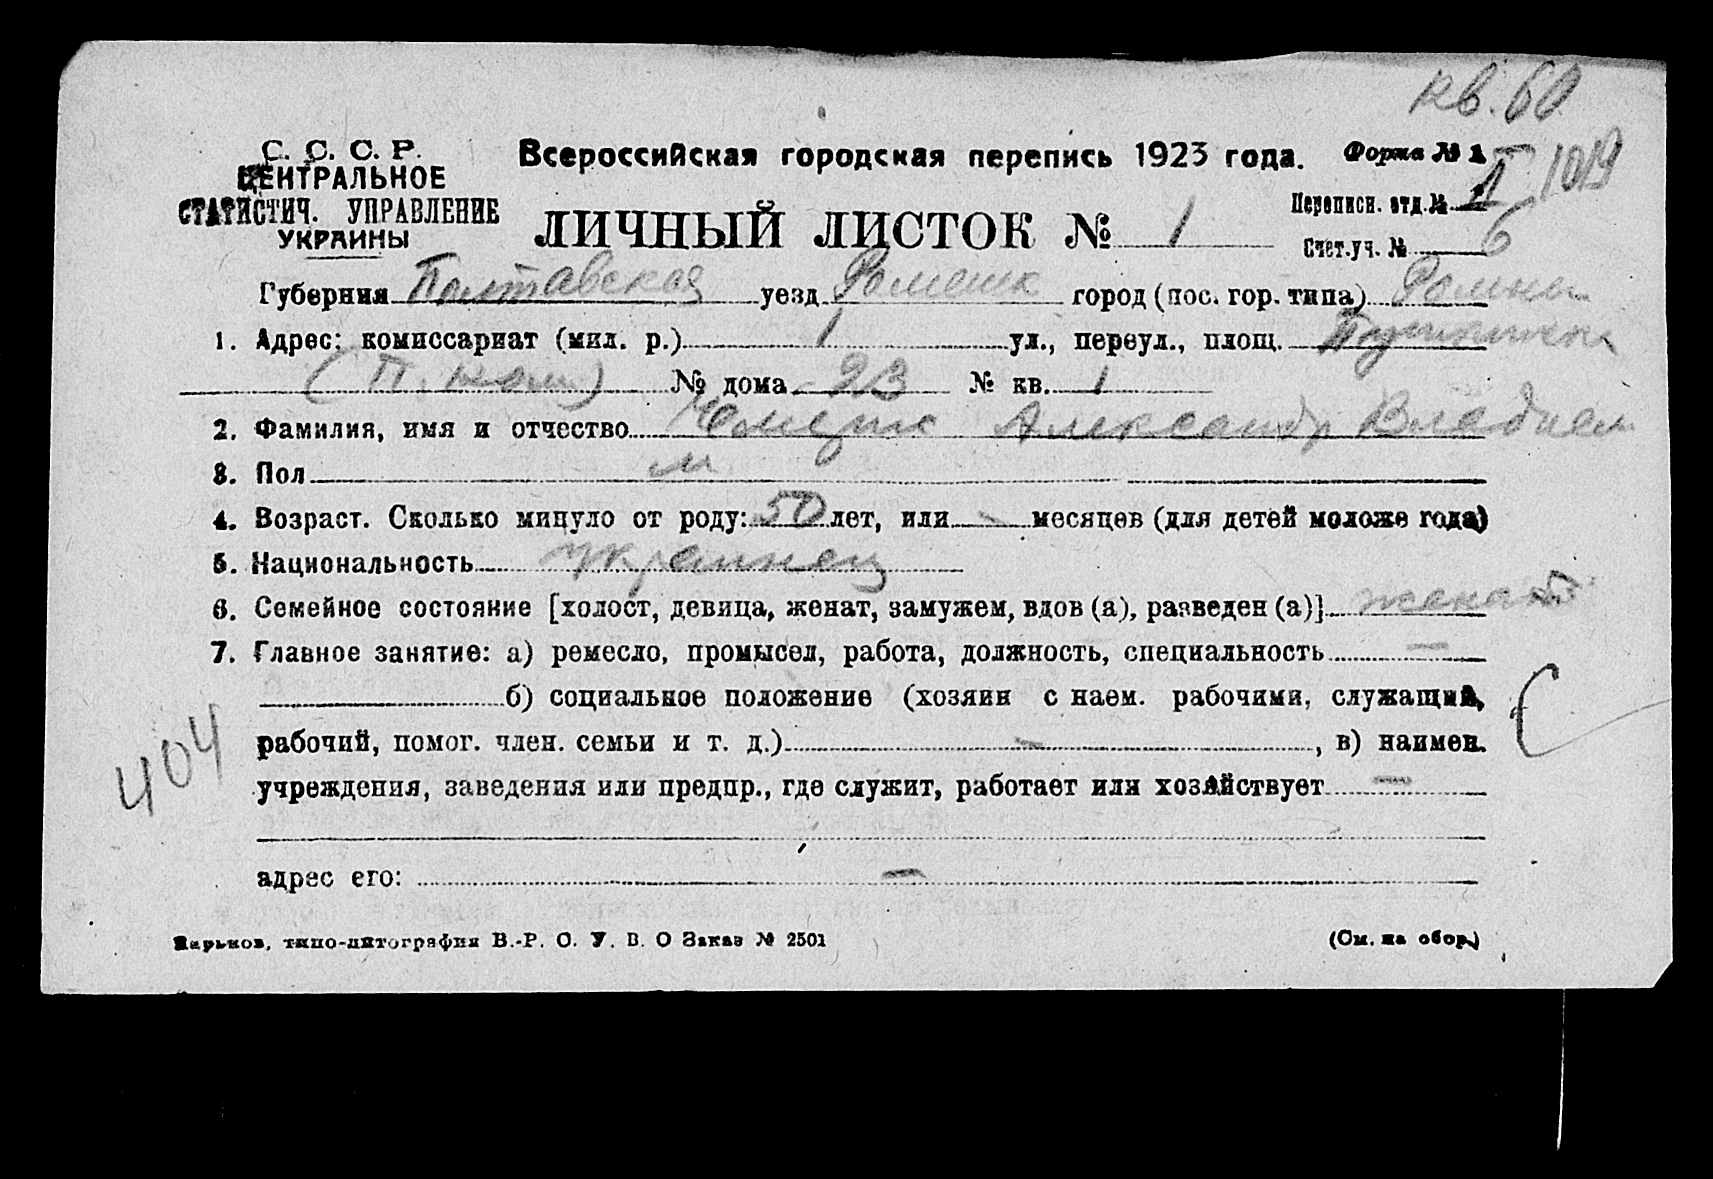 кв. 60
С. С. С. Р.
ЦЕНТРАЛЬНОЕ
СТАТИСТИЧ. УПРАВЛЕНИЕ
УКРАИНЫ
Всероссийская городская перепись 1923 года.
Форма № 1
1019
ЛИЧНЫЙ ЛИСТОК № 1
Переписн. отд. №
Счет.уч. № 6
Губерния Полтавская уезд Роменск город (пос. гор. типа) Ромны
1. Адрес: комиссариат (мил. р.) 1 ул., переул., площ.
(П. ком) № дома 23 № кв. 1
2. Фамилия, имя и отчество Александр Владием
3. Пол м
4. Возраст. Сколько минуло от роду: 50 лет, или - месяцев (для детей моложе года)
5. Национальность украинец
6. Семейное состояние [холост, девица, женат, замужем, вдов (а), разведен (а)] женат
7. Главное занятие: а) ремесло, промысел, работа, должность, специальность —
б) социальное положение (хозяин с наем. рабочими, служащий,
рабочий, помог. член. семьи и т. д.) - , в) наимен.
учреждения, заведения или предпр., где служит, работает или хозяйствует —
адрес его: —
404
С
Харьков, типо-литография В.-Р. О. У. В. О Заказ № 2501
(См. на обор.)